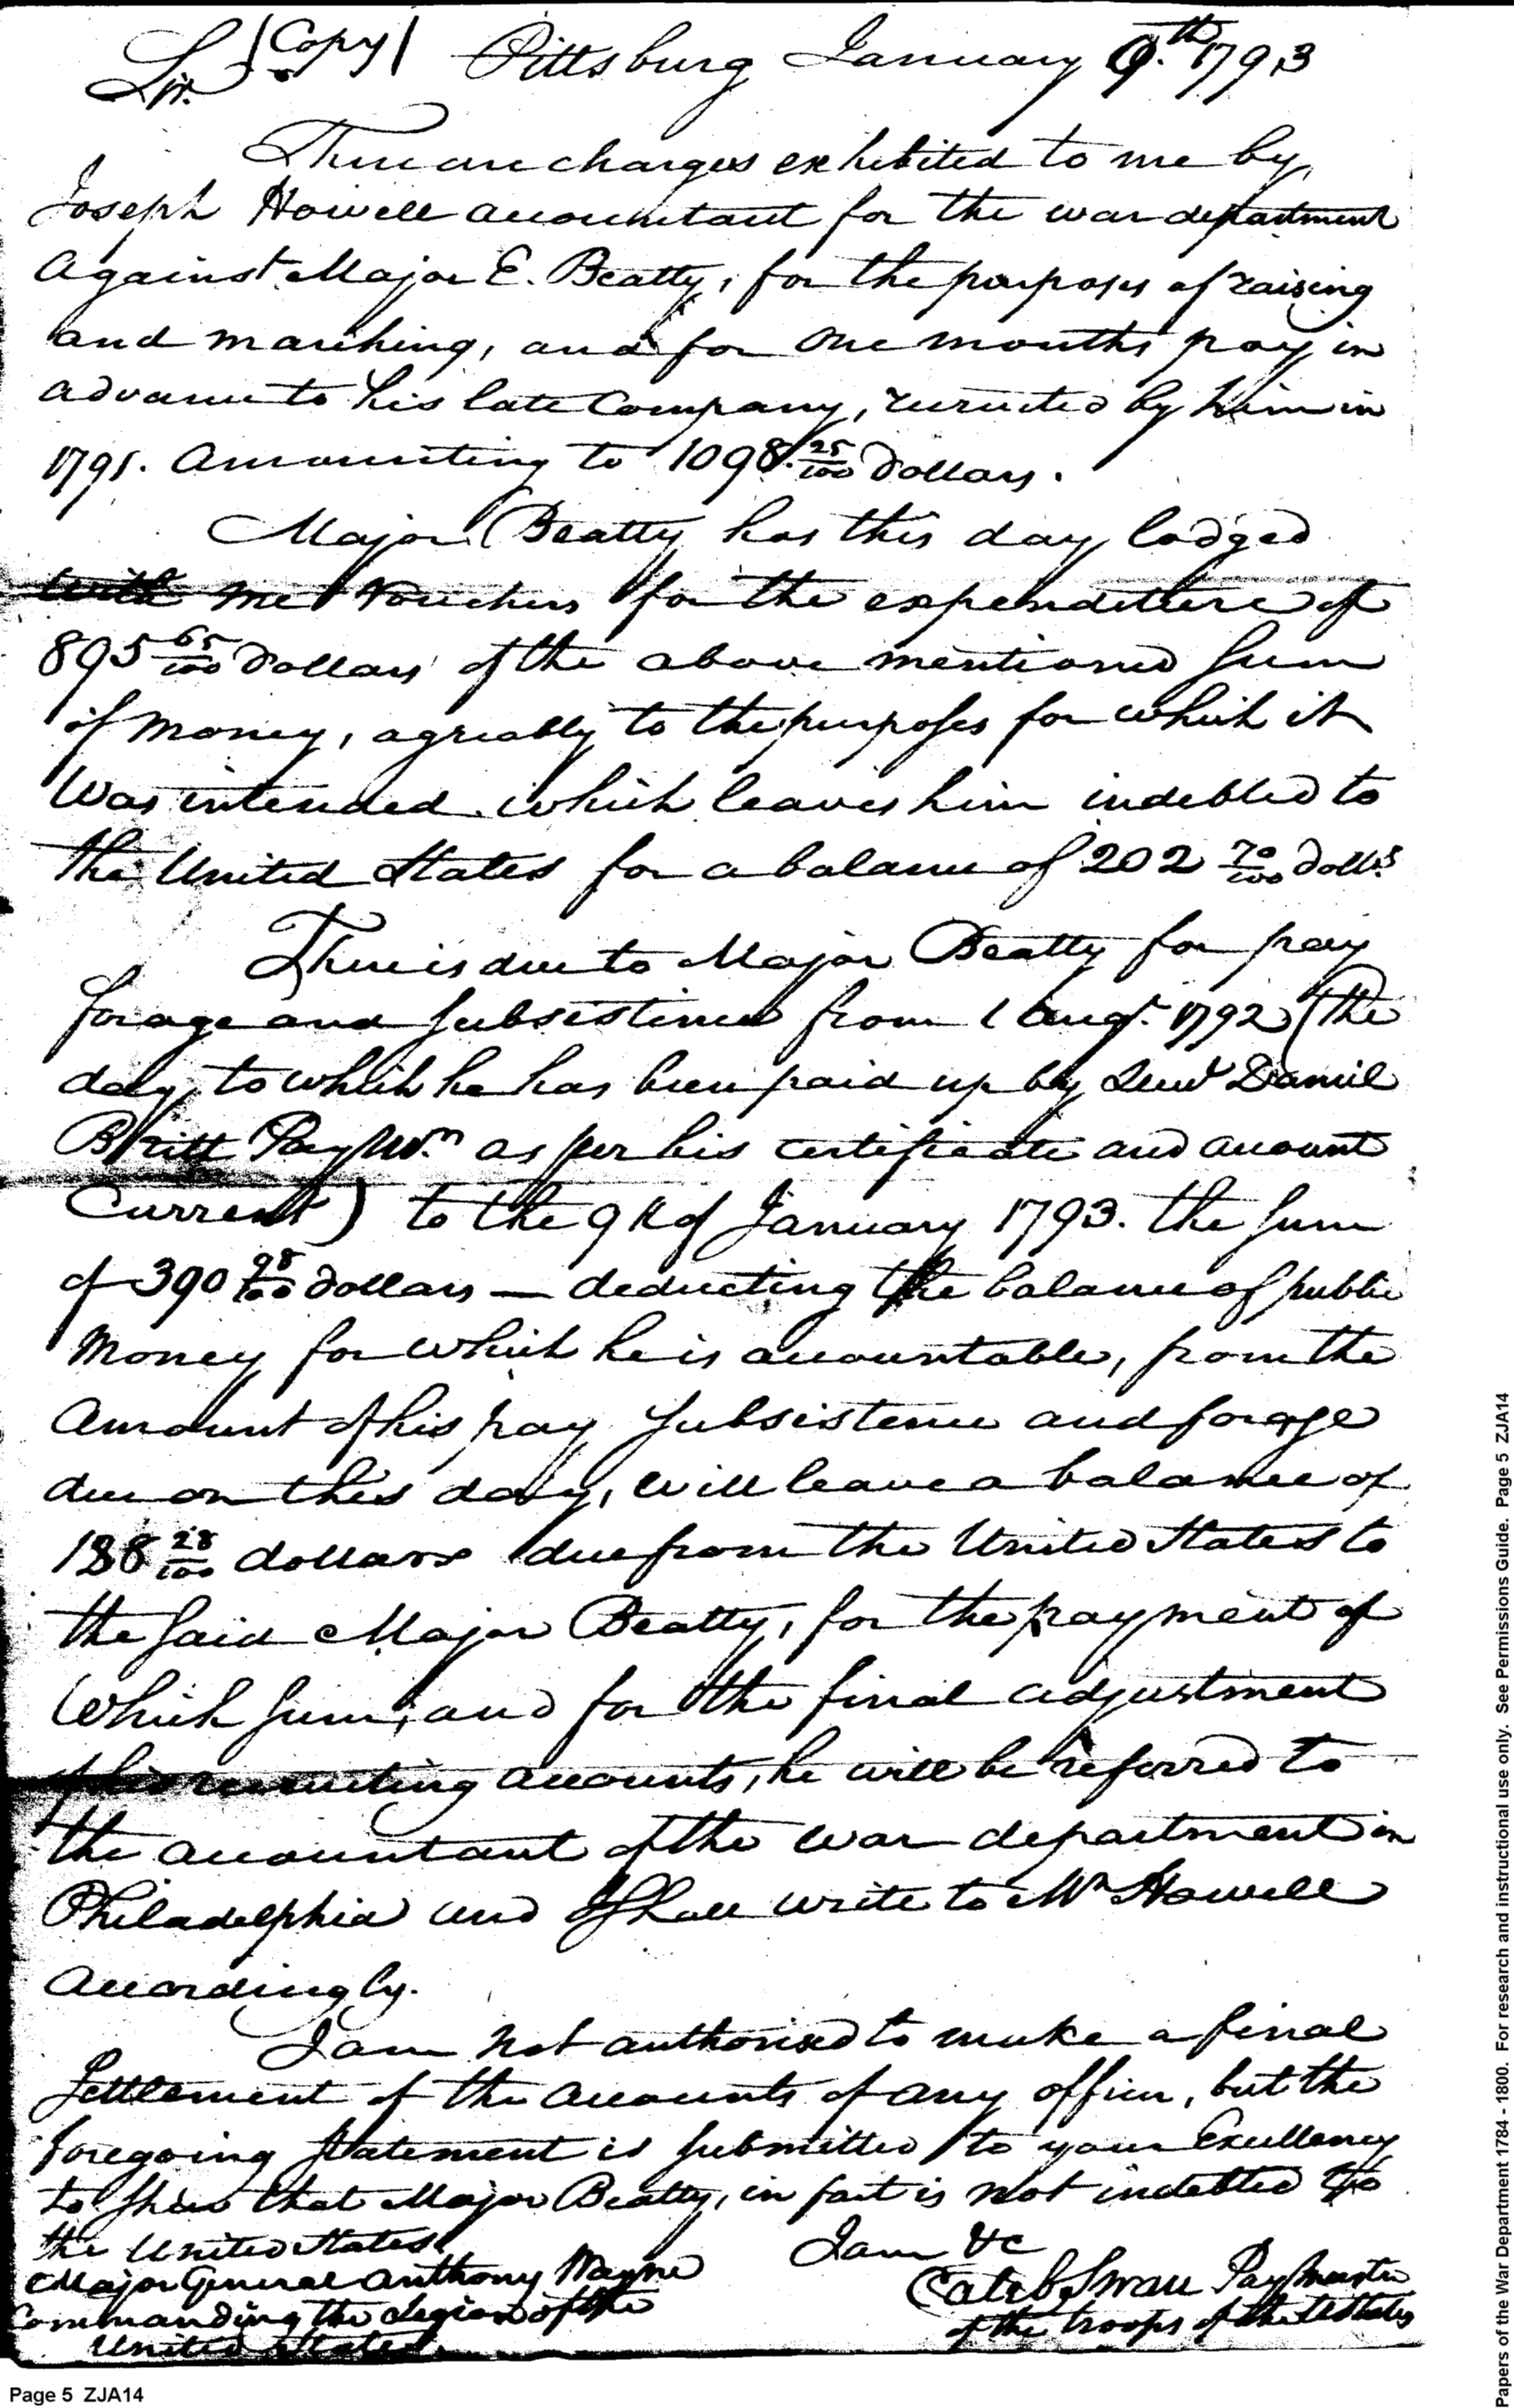 Sir. (Copy) Pittsburg January 9.th 1793
There are charges exhibited to me by
Joseph Howell accountant for the war department
Against Major E. Beatty, for the purposes of raising
and marching, and for one months pay in
advance to his late Company, recruited by him in
1791. Amounting to 1098. 25/100 Dollars.
Major Beatty has this day lodged
with me Vouchers for the expenditure of
895 65/100 Dollars of the above mentioned Sum
of Money, agreably to the purposes for which it
Was intended which leaves him indebted to
the United States for a balance of 202 70/100 Doll.s
There is due to Major Beatty for pay
forage and Subsistence from 1 Augt. 1792 (the
day to which he has been paid up by Lieut Daniel
Britt Pay Mr. as per his certificate and account
Current) to the 9th of January 1793. the Sum
of 390 98/100 Dollars — deducting the balance of public
Money for which he is accountable, from the
Amount of his pay Subsistence and forage
due on this day, will leave a balance of
188 28/100 dollars due from the United States to
the Said Major Beatty, for the payment of
Which Sum, and for the final adjustment
of his recruiting accounts, he will be referred to
the accountant of the war department in
Philadelphia and I Shall write to Mr Howell
Accordingly.
I am not authorised to make a final
Settlement of the Accounts of any officer, but the
foregoing Statement is Submitted to your Excellency
to Shew that Major Beatty, in fact is not indebted to
the United States
I am &c
Major General Anthony Wayne
Commanding the Legion of the
United States
Caleb Swan Pay Master
of the troops of the U States
Page 5 ZJA14
Papers of the War Department 1784 - 1800. For research and instructional use only. See Permissions Guide. Page 5 ZJA14